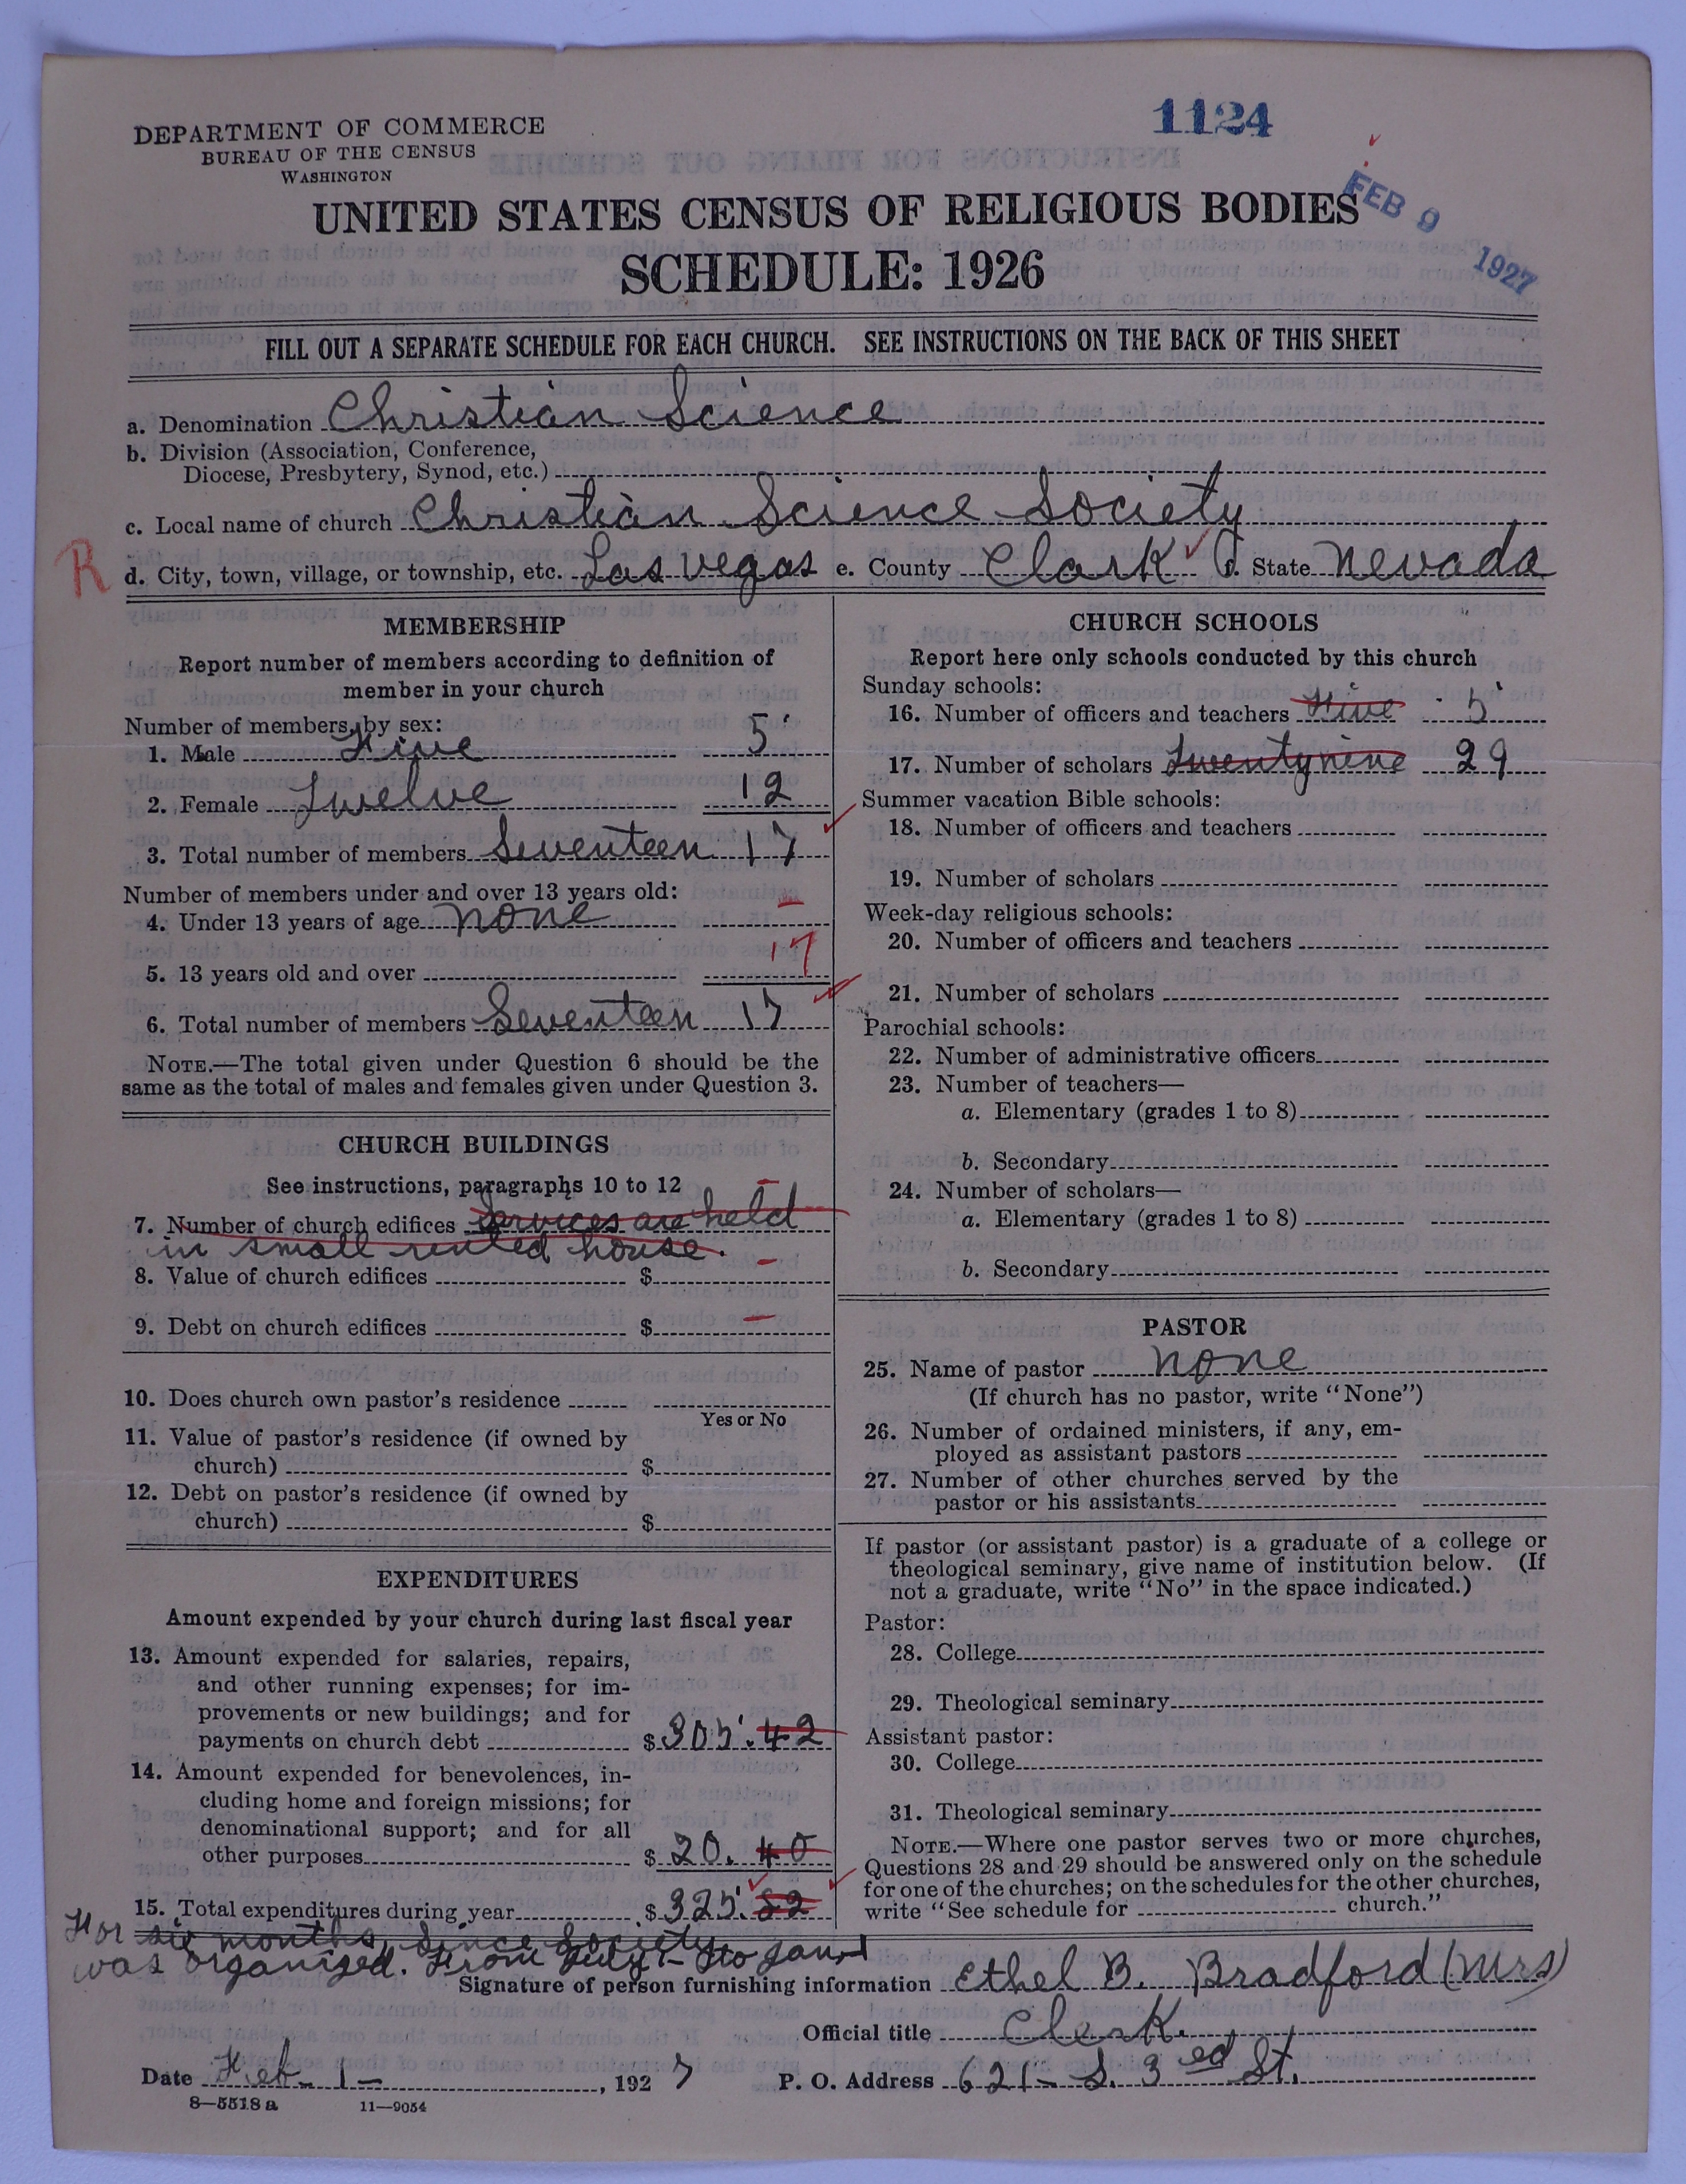 1124
DEPARTMENT OF COMMERCE
BUREAU OF THE CENSUS
WASHINGTON
FEB 9 1927
UNITED STATES CENSUS OF RELIGIOUS BODIES
SCHEDULE: 1926
FILL OUT A SEPARATE SCHEDULE FOR EACH CHURCH. SEE INSTRUCTIONS ON THE BACK OF THIS SHEET
a. Denomination Christian Science
b. Division (Association, Conference,
Diocese, Presbytery, Synod, etc.)
c. Local name of church Christian Science Society
R d. City, town, village, or township, etc. Las Vegas e. County Clark f. State Nevada
MEMBERSHIP
Report number of members according to definition of
member in your church
Number of members by sex:
1. Male Five 5
2. Female Twelve 12
3. Total number of members Seventeen 17
Number of members under and over 13 years old:
4. Under 13 years of age none –
5. 13 years old and over 17
6. Total number of members Seventeen 17
NOTE.—The total given under Question 6 should be the
same as the total of males and females given under Question 3.
CHURCH BUILDINGS
See instructions, paragraphs 10 to 12
7. Number of church edifices Services are held
in small rented house.
8. Value of church edifices $ –
9. Debt on church edifices $ –
10. Does church own pastor's residence
Yes or No
11. Value of pastor's residence (if owned by
church) $
12. Debt on pastor's residence (if owned by
church) $
EXPENDITURES
Amount expended by your church during last fiscal year
13. Amount expended for salaries, repairs,
and other running expenses; for im-
provements or new buildings; and for
payments on church debt $305.42
14. Amount expended for benevolences, in-
cluding home and foreign missions; for
denominational support; and for all
other purposes $20.40
15. Total expenditures during year $325.82
For six months, since Society
was organized. From July 1– to Jan 1
CHURCH SCHOOLS
Report here only schools conducted by this church
Sunday schools:
16. Number of officers and teachers Five 5
17. Number of scholars Twenty nine 29
Summer vacation Bible schools:
18. Number of officers and teachers
19. Number of scholars
Week-day religious schools:
20. Number of officers and teachers
21. Number of scholars
Parochial schools:
22. Number of administrative officers
23. Number of teachers—
a. Elementary (grades 1 to 8)
b. Secondary
24. Number of scholars—
a. Elementary (grades 1 to 8)
b. Secondary
PASTOR
25. Name of pastor none
(If church has no pastor, write "None")
26. Number of ordained ministers, if any, em-
ployed as assistant pastors
27. Number of other churches served by the
pastor or his assistants
If pastor (or assistant pastor) is a graduate of a college or
theological seminary, give name of institution below. (If
not a graduate, write "No" in the space indicated.)
Pastor:
28. College
29. Theological seminary
Assistant pastor:
30. College
31. Theological seminary
NOTE.—Where one pastor serves two or more churches,
Questions 28 and 29 should be answered only on the schedule
for one of the churches; on the schedules for the other churches,
write "See schedule for church."
Signature of person furnishing information Ethel B. Bradford (Mrs)
Official title Clerk.
Date Feb. 1–, 1927 P. O. Address 621– S. 3ed St.
8—5518 a 11—9054